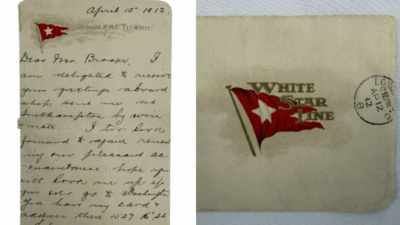 April 10th 1912.
On board R.M.S. "TITANIC".
Dear Mrs Brooks. I
am delighted to receive
your greetings aboard
ship sent me
Southampton by
I too look
forward to again renew
ing our pleasant ac
quaintance: hope you
will look me up if
you go to Washington
You have my card &
address there 1527 16th St
WHITE
STAR
LINE
AP 12
12
8